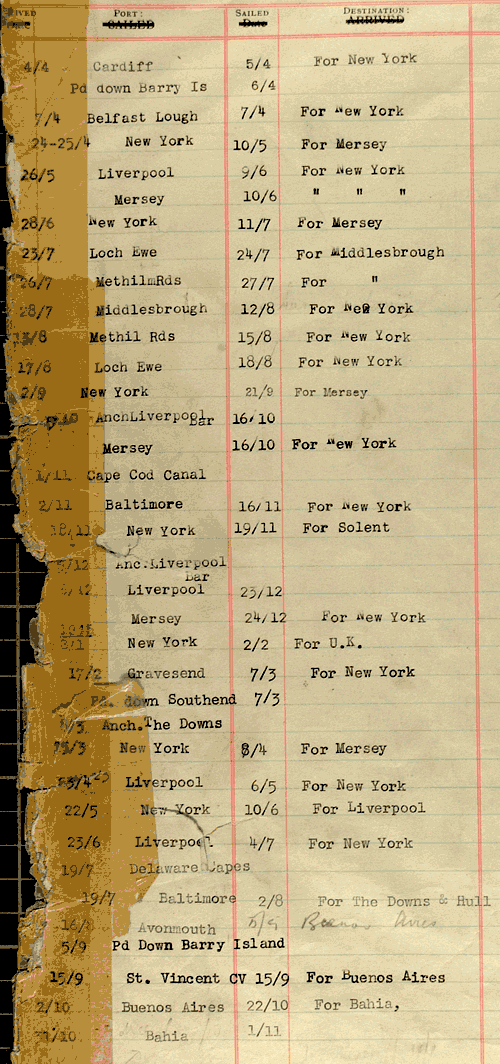 PORT: SAILED DESTINATION:
SAILED Date ARRIVED
4/4 Cardiff 5/4 For New York
Pd down Barry Is 6/4
7/4 Belfast Lough 7/4 For New York
24-25/4 New York 10/5 For Mersey
26/5 Liverpool 9/6 For New York
Mersey 10/6 " " "
28/6 New York 11/7 For Mersey
23/7 Loch Ewe 24/7 For Middlesbrough
26/7 MethilmRds 27/7 For "
28/7 Middlesbrough 12/8 For New York
/8 Methil Rds 15/8 For New York
17/8 Loch Ewe 18/8 For New York
2/9 New York 21/9 For Mersey
AnchLiverpool Bar 16/10
Mersey 16/10 For New York
1/11 Cape Cod Canal
2/11 Baltimore 16/11 For New York
18/11 New York 19/11 For Solent
/12 Anc.Liverpool
Bar
/12 Liverpool 23/12
Mersey 24/12 For New York
1945
/1 New York 2/2 For U.K.
17/2 Gravesend 7/3 For New York
Pd. down Southend 7/3
/3 Anch.The Downs
/3 New York 8/4 For Mersey
Liverpool 6/5 For New York
22/5 New York 10/6 For Liverpool
23/6 Liverpool 4/7 For New York
19/7 Delaware Capes
19/7 Baltimore 2/8 For The Downs & Hull
16/8 Avonmouth 5/9 Buenos Aires
5/9 Pd Down Barry Island
15/9 St. Vincent CV 15/9 For Buenos Aires
2/10 Buenos Aires 22/10 For Bahia,
/10 Bahia 1/11